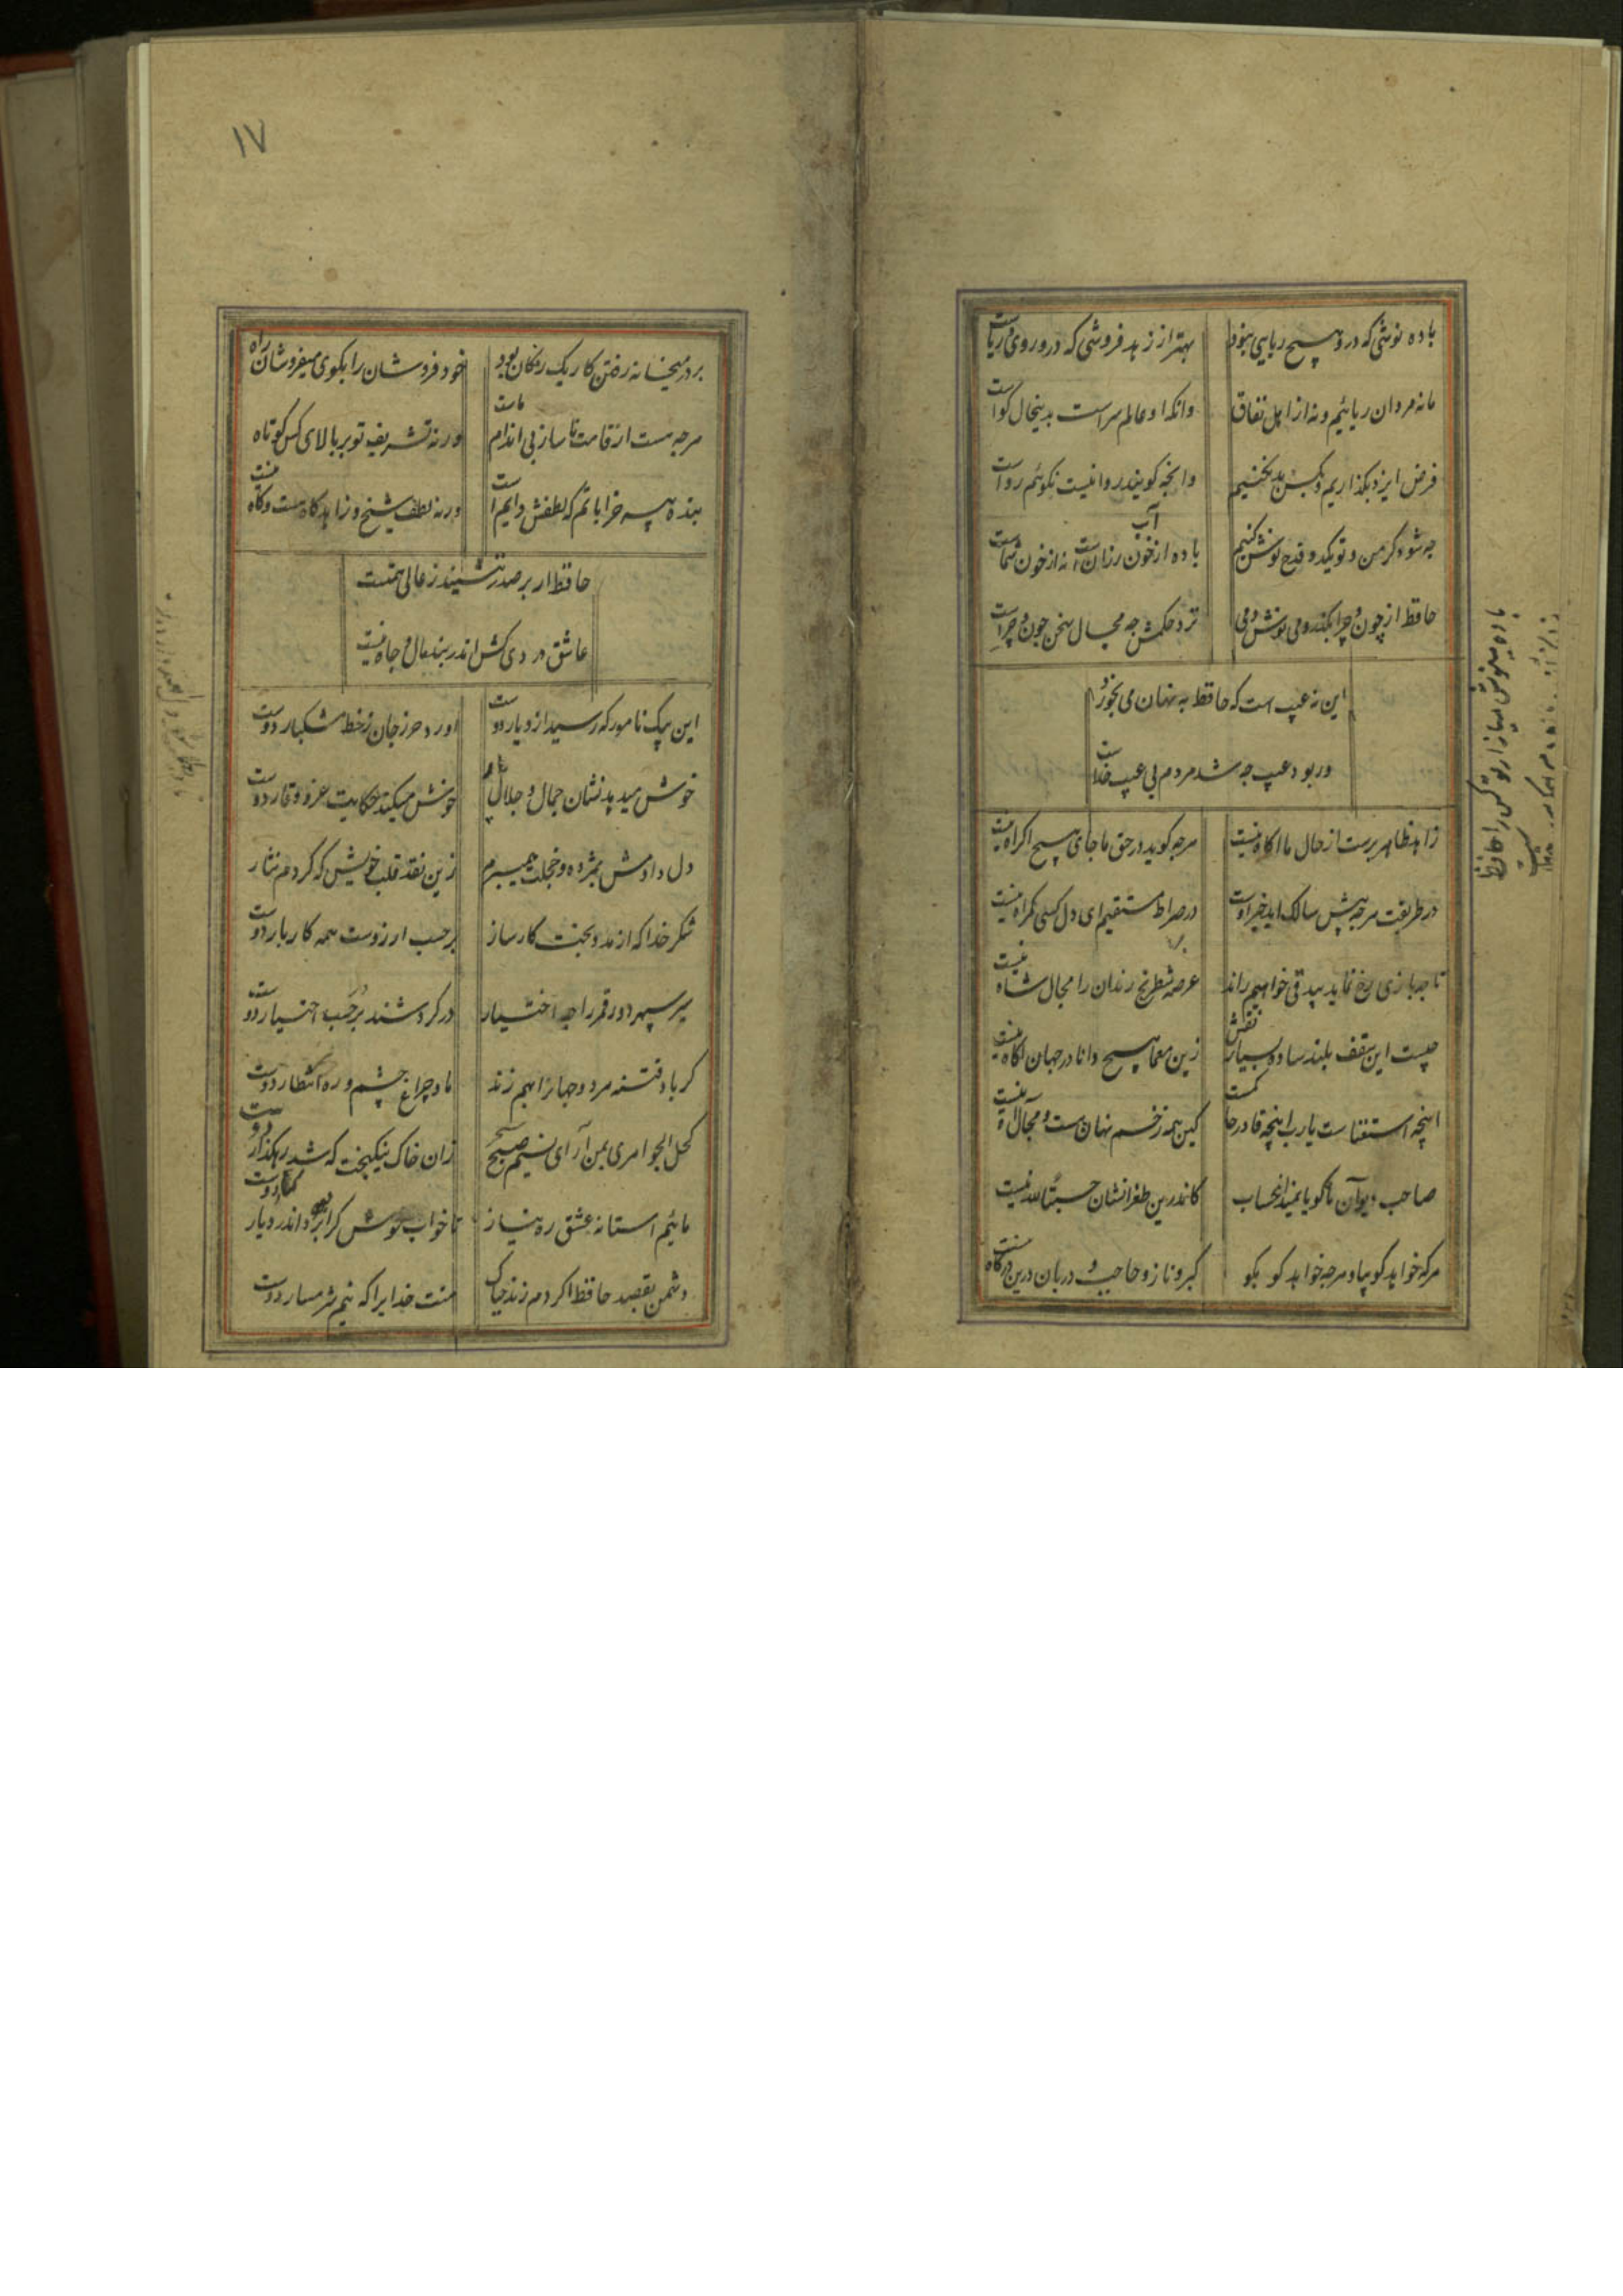 باده نوشی که درو هیچ ریایی نبود بهتر از زهد فروشی که درو روی و ریاست
ما نه مردان ریائیم و نه از اهل نفاق وانکه او عالم سرست بدینحال کواست
فرض ایزد بکذاریم و بکس بد نکنیم وانچه کویند روا نیست نکوئیم رواست
چه شود کر من و تو یکدو قدح نوش کنیم باده از خون رزانست نه از خون شماست
آب
حافظ از چون و چرا بکذر و می نوش ولی نزد حکمش چه مجال سخن چون و چراست
این نه عیب است که حافظ به نهان می بخورد
ور بود عیب چه شد مردم بی عیب کجاست
زاهد ظاهر پرست از حال ما اکاه نیست هرچه کوید در حق ما جای هیچ اکراه نیست
در طریقت هرچه پیش سالک اید خیر اوست در صراط مستقیم ای دل کسی کمراه نیست
تا چه بازی رخ نماید بیدقی خواهیم راند عرصه شطرنج رندان را مجال شاه نیست
چیست این سقف بلند ساده بسیار نقش زین معما هیچ دانا در جهان اکاه نیست
اینچه استغناست یارب اینچه قادر حاکمست کین همه زخم نهان هست و مجال آه نیست
صاحب دیوان ما کویا نمیداند حساب کاندرین طغرا نشان حسبة لله نیست
هرکه خواهد کو بیا و هرچه خواهد کو بکو کبر و ناز و حاجب و دربان درین درکاه نیست
باده مینوش میازار تو کس را حافظ
۱۷
بر در میخانه رفتن کار یک رنکان بود خود فروشان را بکوی میفروشان راه
هرچه هست از قامت ناساز بی اندام ماست ورنه تشریف تو بر بالای کس کوتاه نیست
بنده پیر خراباتم که لطفش دایم است ورنه لطف شیخ و زاهد کاه هست و کاه
حافظ ار بر صدر ننشیند ز عالی همتیست
عاشق دردی کش اندر بند مال و جاه نیست
این پیک نامور که رسید از دیار دوست اورد حرز جان ز خط مشکبار دوست
خوش میدهد نشان جمال و جلال یار خوش میکند حکایت عز و وقار دوست
دل دادمش بمژده و خجلت همیبرم زین نقد قلب خویش که کردم نثار
شکر خدا که از مدد بخت کارساز بر حسب ارزوست همه کار و بار دوست
سیر سپهر و دور قمر را چه اختیار در کردشند بر حسب اختیار دوست
کر باد فتنه هر دو جهانرا بهم زند ما و چراغ چشم و ره انتظار دوست
کحل الجواهری بمن آر ای نسیم صبح زان خاک نیکبخت که شد رهکذار دوست
مائیم استانه عشق و ره نیاز تا خواب خوش کرا برد اندر دیار کنار دوست
دشمن بقصد حافظ اکر دم زند چه باک منت خدایرا که نیم شرمسار دوست